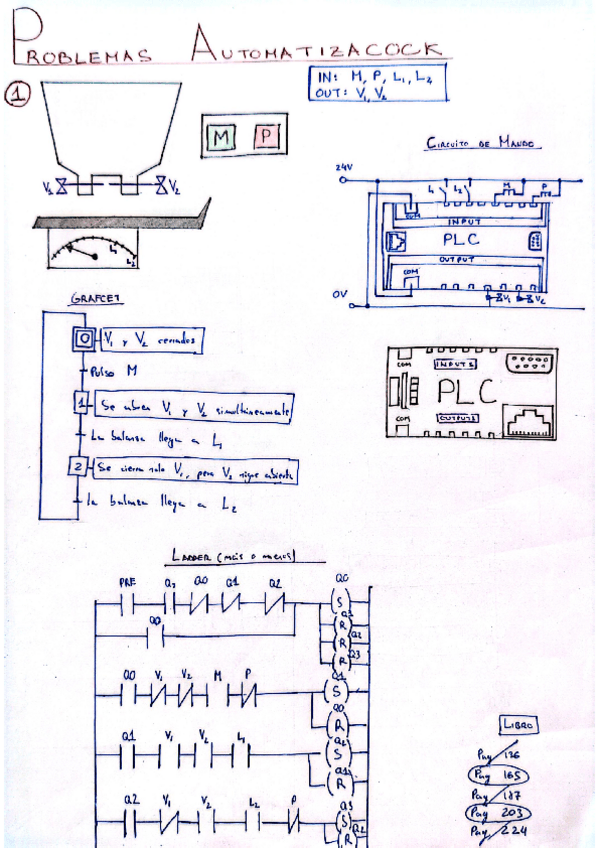 PROBLEMAS AUTOMATIZACOCK
1
IN: M, P, L1, L2
OUT: V1, V2
M P
V1 V2
L1
L2
CIRCUITO DE MANDO
24V
L1 L2 M P
COM
INPUT
PLC
OUTPUT
COM
0V
V1 V2
GRAFCET
0 V1 y V2 cerrados
Pulso M
1 Se abren V1 y V2 simultáneamente
La balanza llega a L1
2 Se cierra solo V1, pero V2 sigue abierta
La balanza llega a L2
COM INPUTS
PLC
COM OUTPUTS
LADDER (más o menos)
PRE Q3 Q0 Q1 Q2 Q0
S
Q0
R
Q2
R
Q3
R
Q0 V1 V2 M P Q1
S
Q0
R
Q1 V1 V2 L1 Q2
S
Q1
R
Q2 V1 V2 L2 P Q3
S
Q2
R
LIBRO
Pag 126
Pag 165
Pag 187
Pag 203
Pag, 224